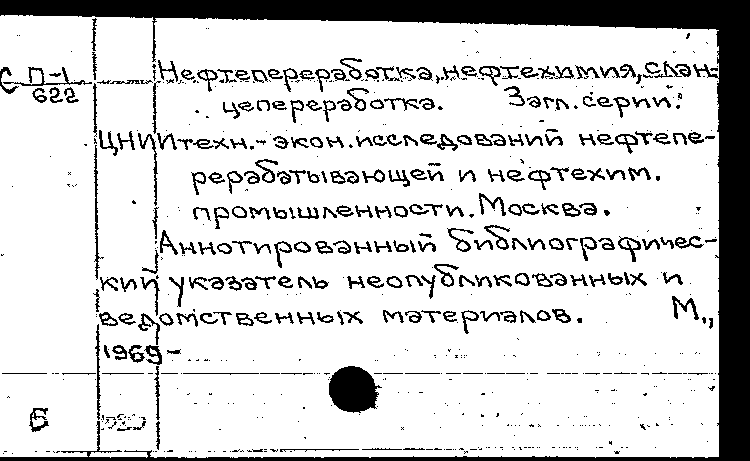 С П-1
622
Нефтепереработка, нефтехимия, слан-
цепереработка. Загл. серии:
ЦНИИтехн.-экон. исследований нефтепе-
рерабатывающей и нефтехим.
промышленности. Москва.
Аннотированный библиографичес-
кий указатель неопубликованных и
ведомственных материалов. М.,
1969-
Б